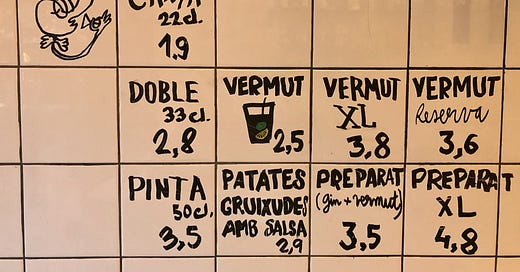 CANYA
22cl.
1.9
DOBLE
33cl.
2,8
VERMUT
2,5
VERMUT
XL
3,8
VERMUT
Reserva
3,6
PINTA
50cl.
3,5
PATATES
GRUIXUDES
AMB SALSA
2,9
PREPARAT
(gin + vermut)
3,5
PREPARAT
XL
4,8